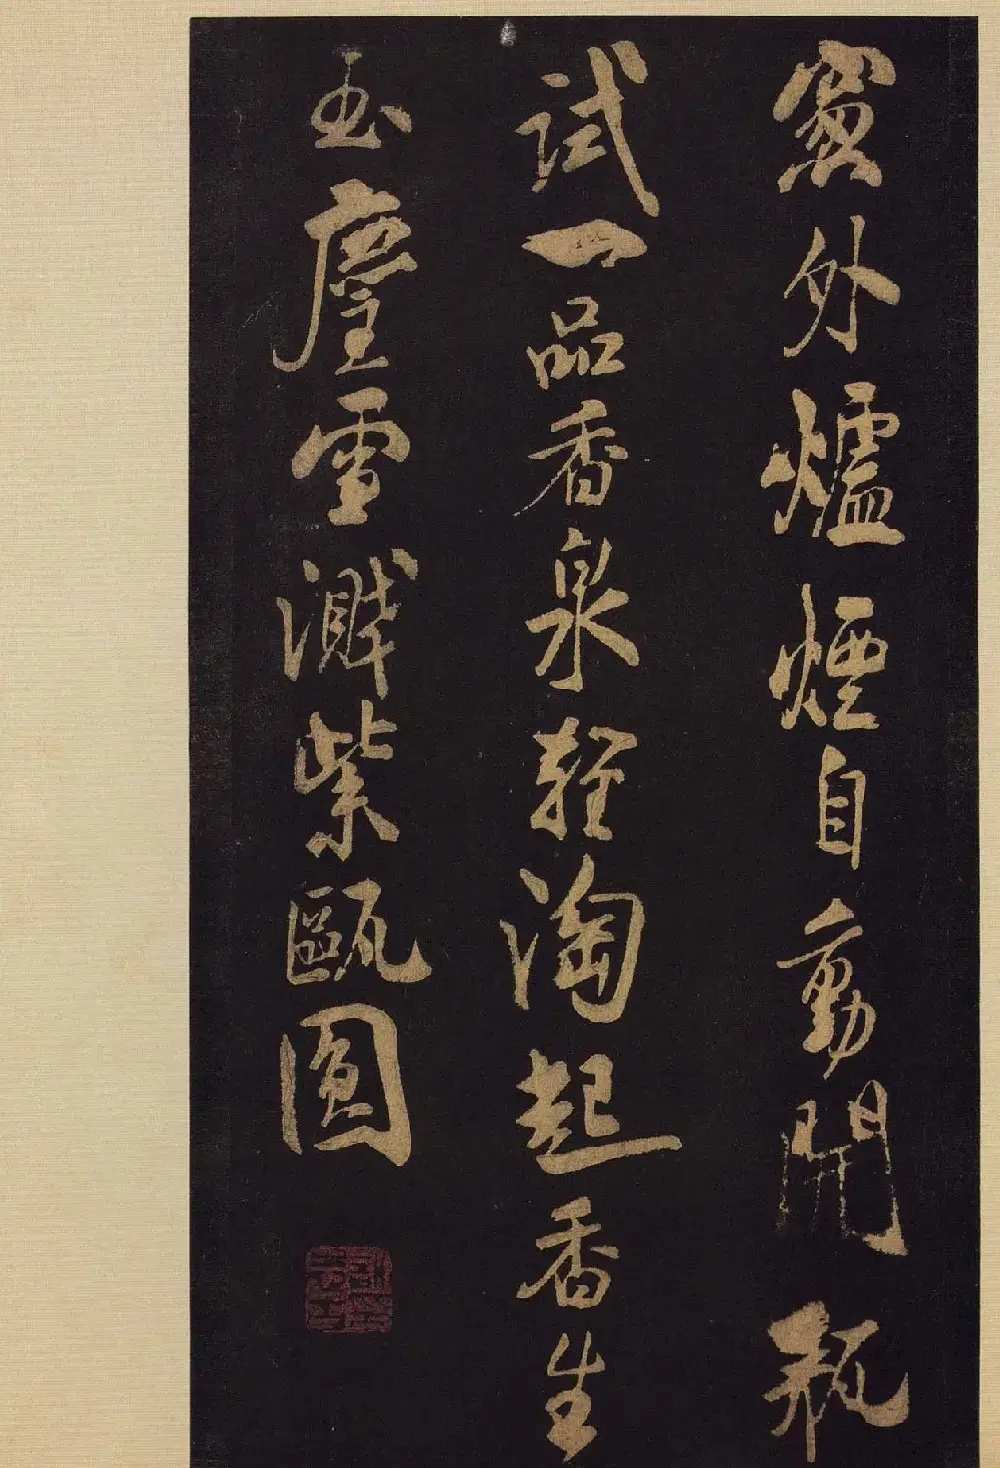 窗外爐煙自動開瓶
試一品香泉輕淘起香生
玉塵雪濺紫甌圓